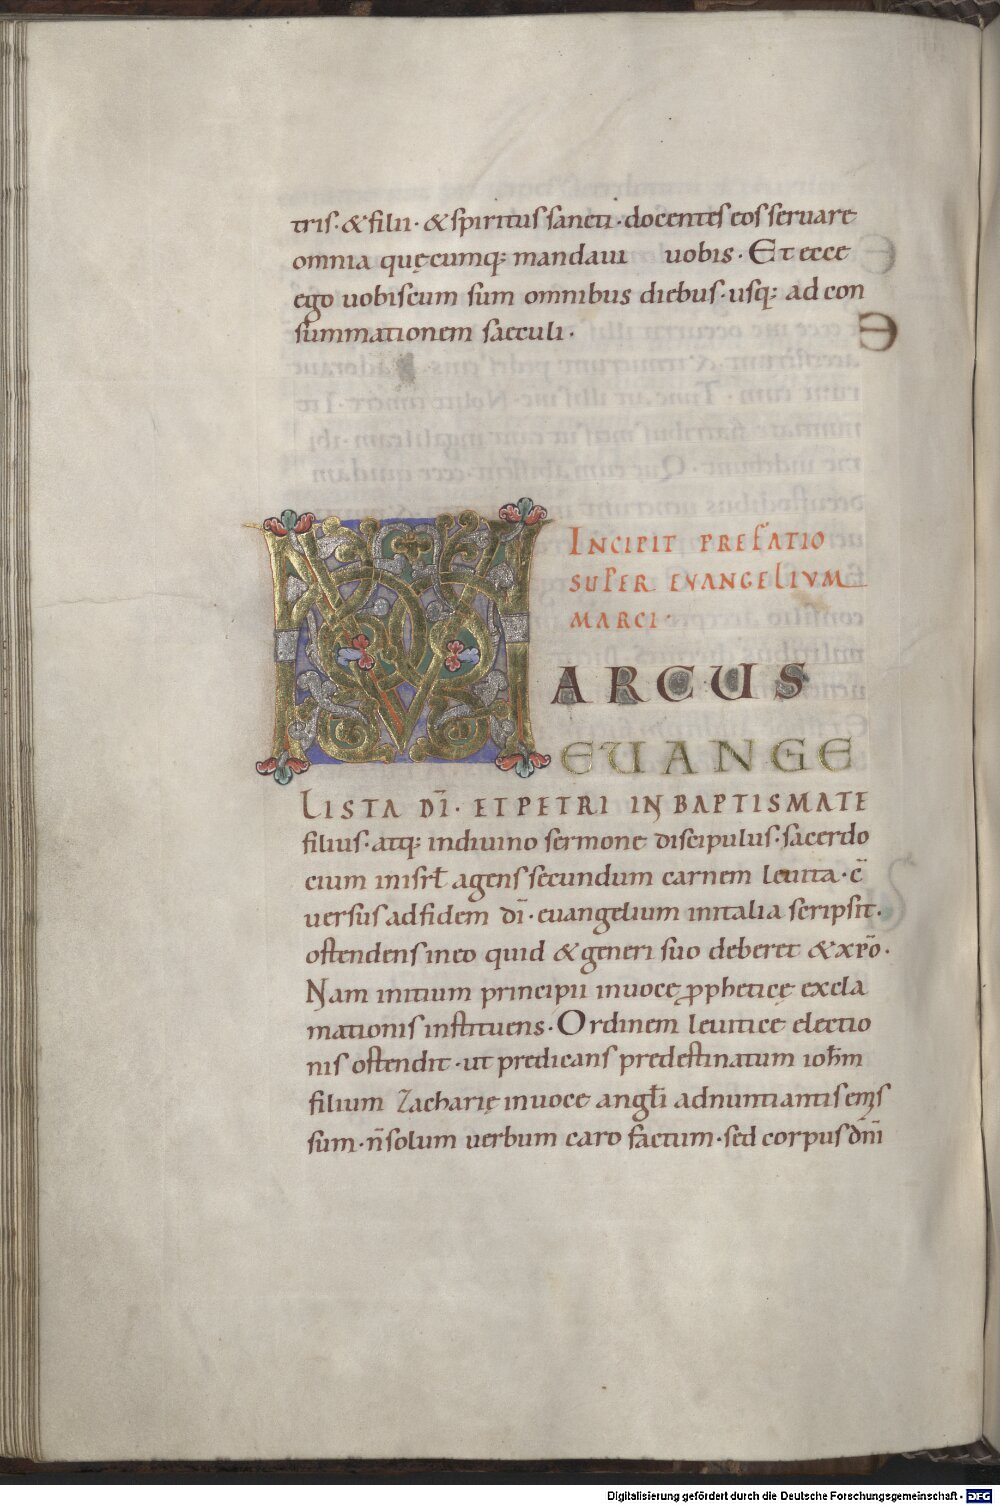 tris · & filii · & spiritus sancti · docentes eos seruare
omnia quęcumq; mandaui uobis · Et ecce
ego uobiscum sum omnibus diebus · usq; ad con
summationem saeculi ·
INCIPIT PREFATIO
SUPER EVANGELIVM
MARCI ·
MARCUS
EUANGE
LISTA DĪ · ET PETRI IN BAPTISMATE
filius · atq; in diuino sermone discipulus · sacerdo
cium in isrł agens secundum carnem leuita · c̄
uersus ad fidem dī · euangelium in italia scripsit ·
ostendens in eo quid & generi suo deberet & xp̄o ·
Nam initium principii in uoce ꝓpheticę excla
mationis instituens · Ordinem leuiticę electio
nis ostendit · ut predicans predestinatum ioħm
filium Zacharię in uoce angłi adnuntiantis emis
sum · n̄ solum uerbum caro factum · sed corpus dn̄i
Digitalisierung gefördert durch die Deutsche Forschungsgemeinschaft - DFG